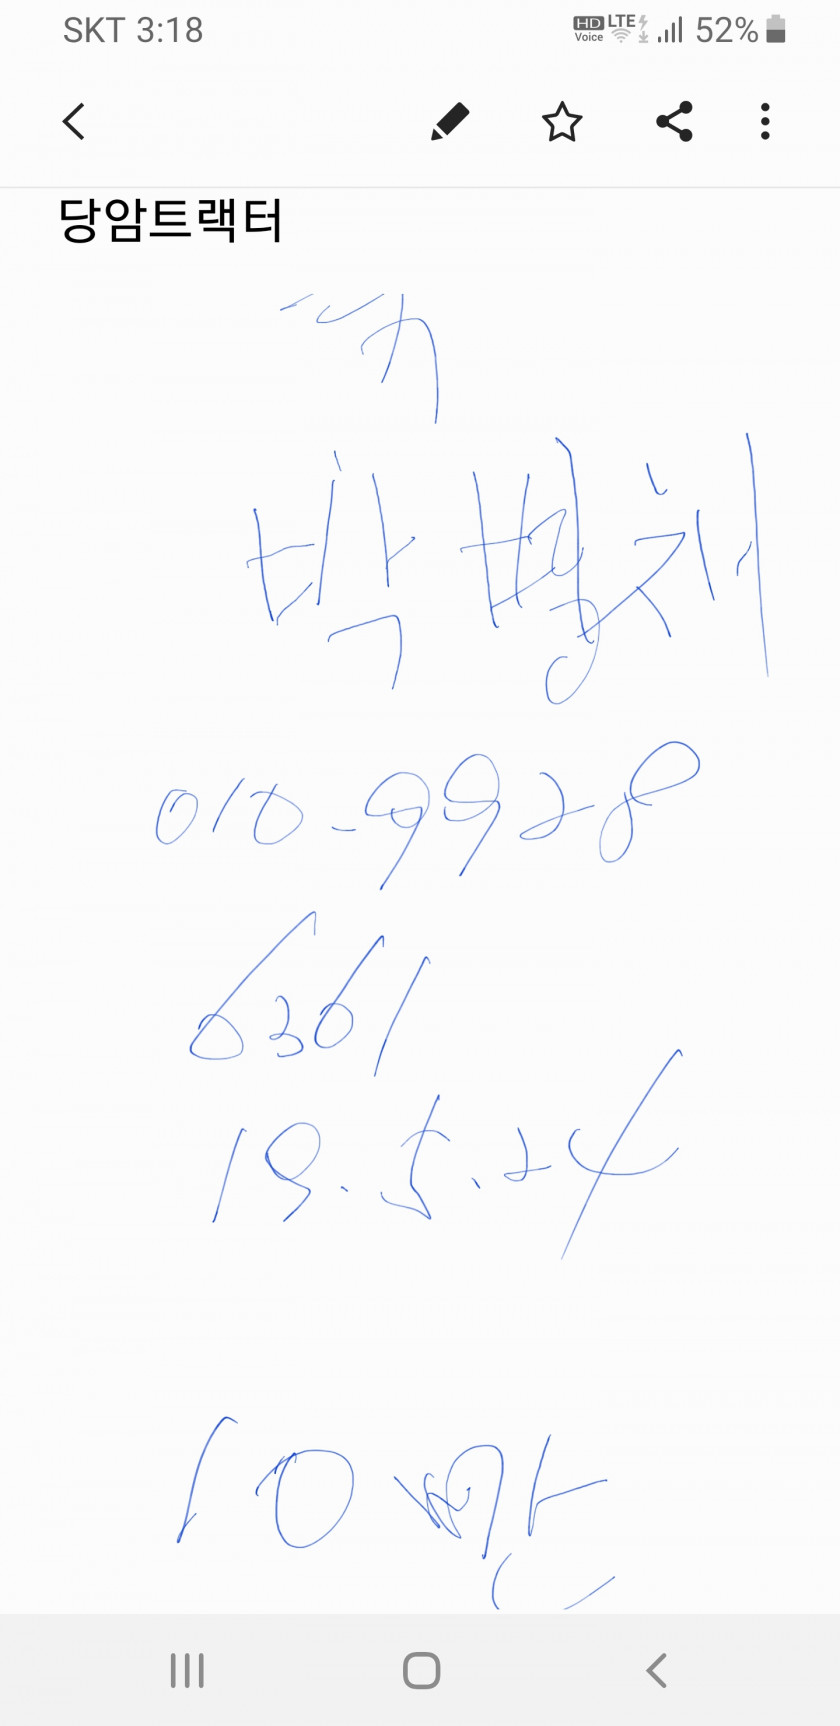 SKT 3:18 HD Voice LTE 52%
당암트랙터
박병
010-9928
6361
19.5.24
10만